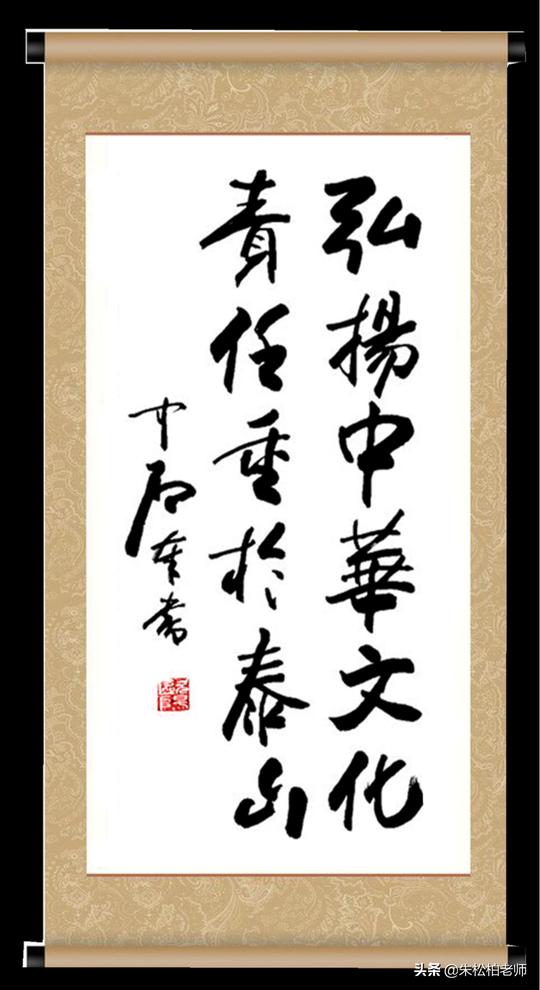 弘揚中華文化
責任重於泰山
中石
头条 @朱松柏老师